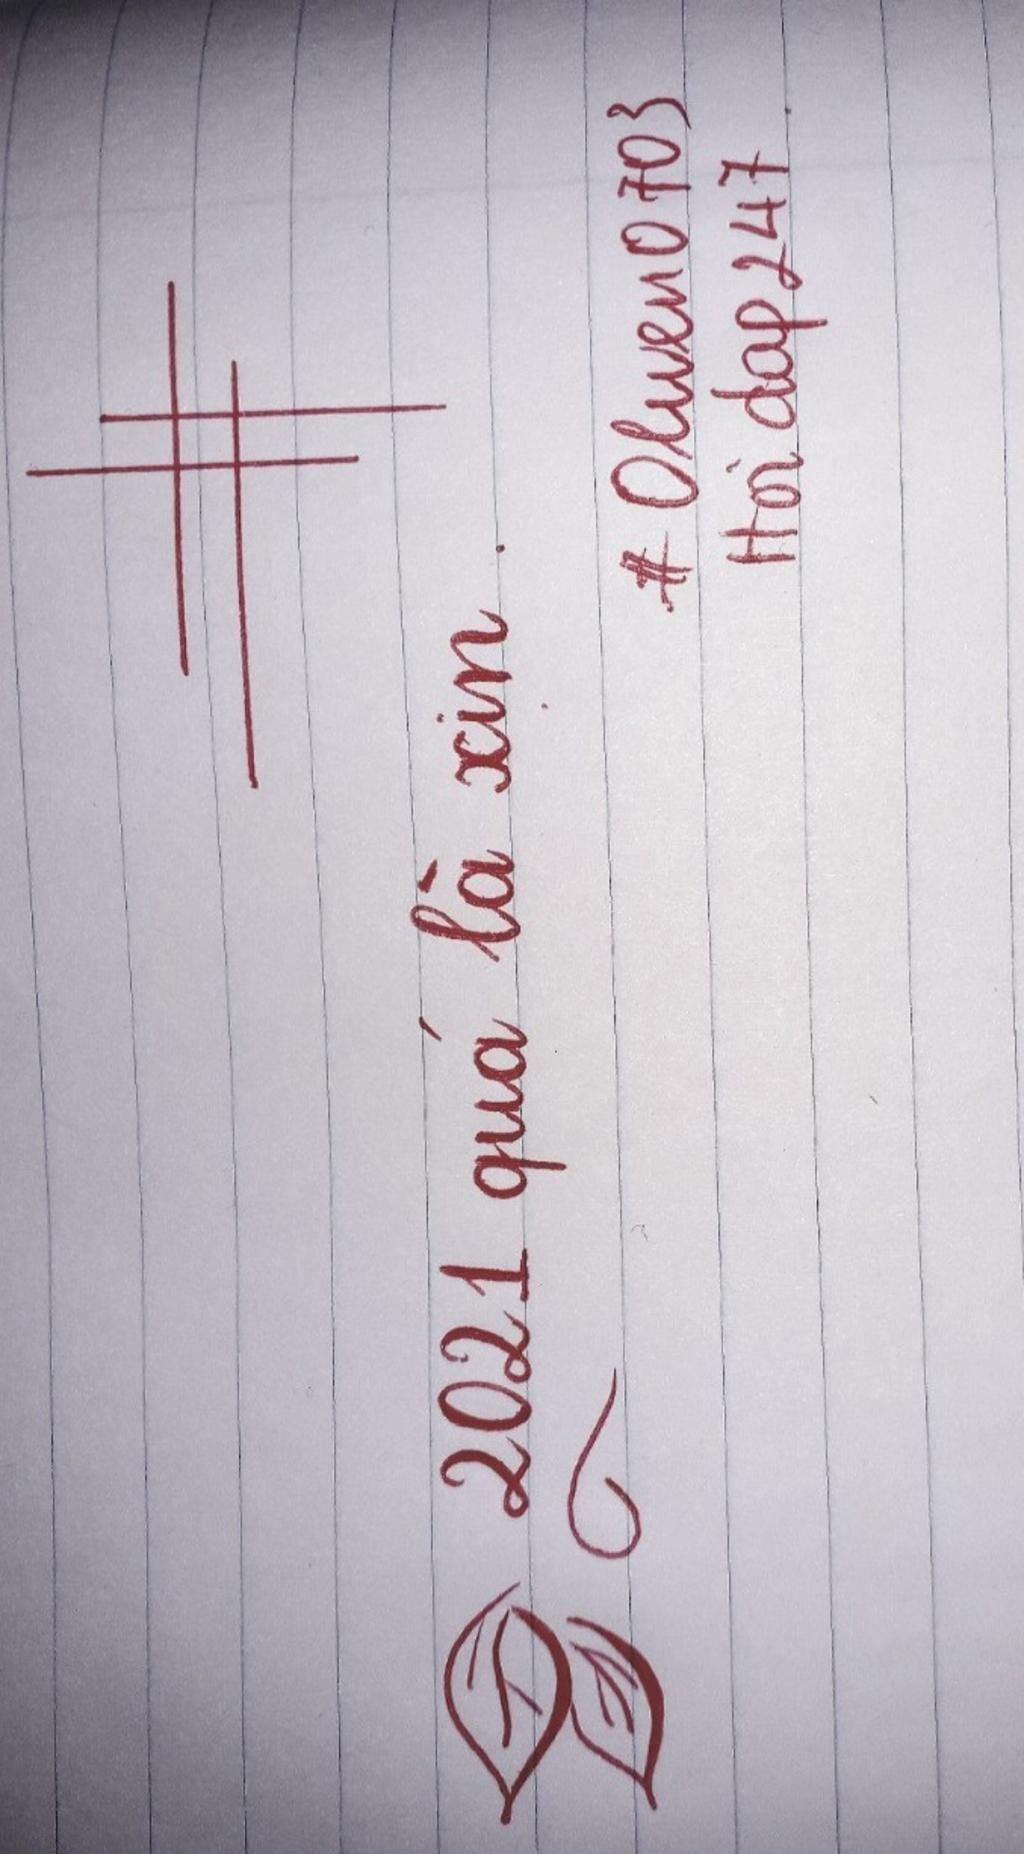 2021 quá là xỉn.
# Oliven0703
Hoidap247